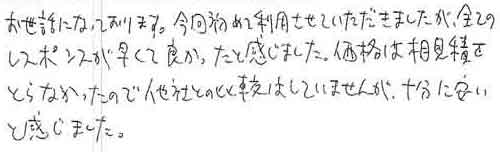 お世話になっております。今回初めて利用させていただきましたが、全ての
レスポンスが早くて良かったと感じました。価格は相見積を
とらなかったので他社との比較はしていませんが、十分に安い
と感じました。